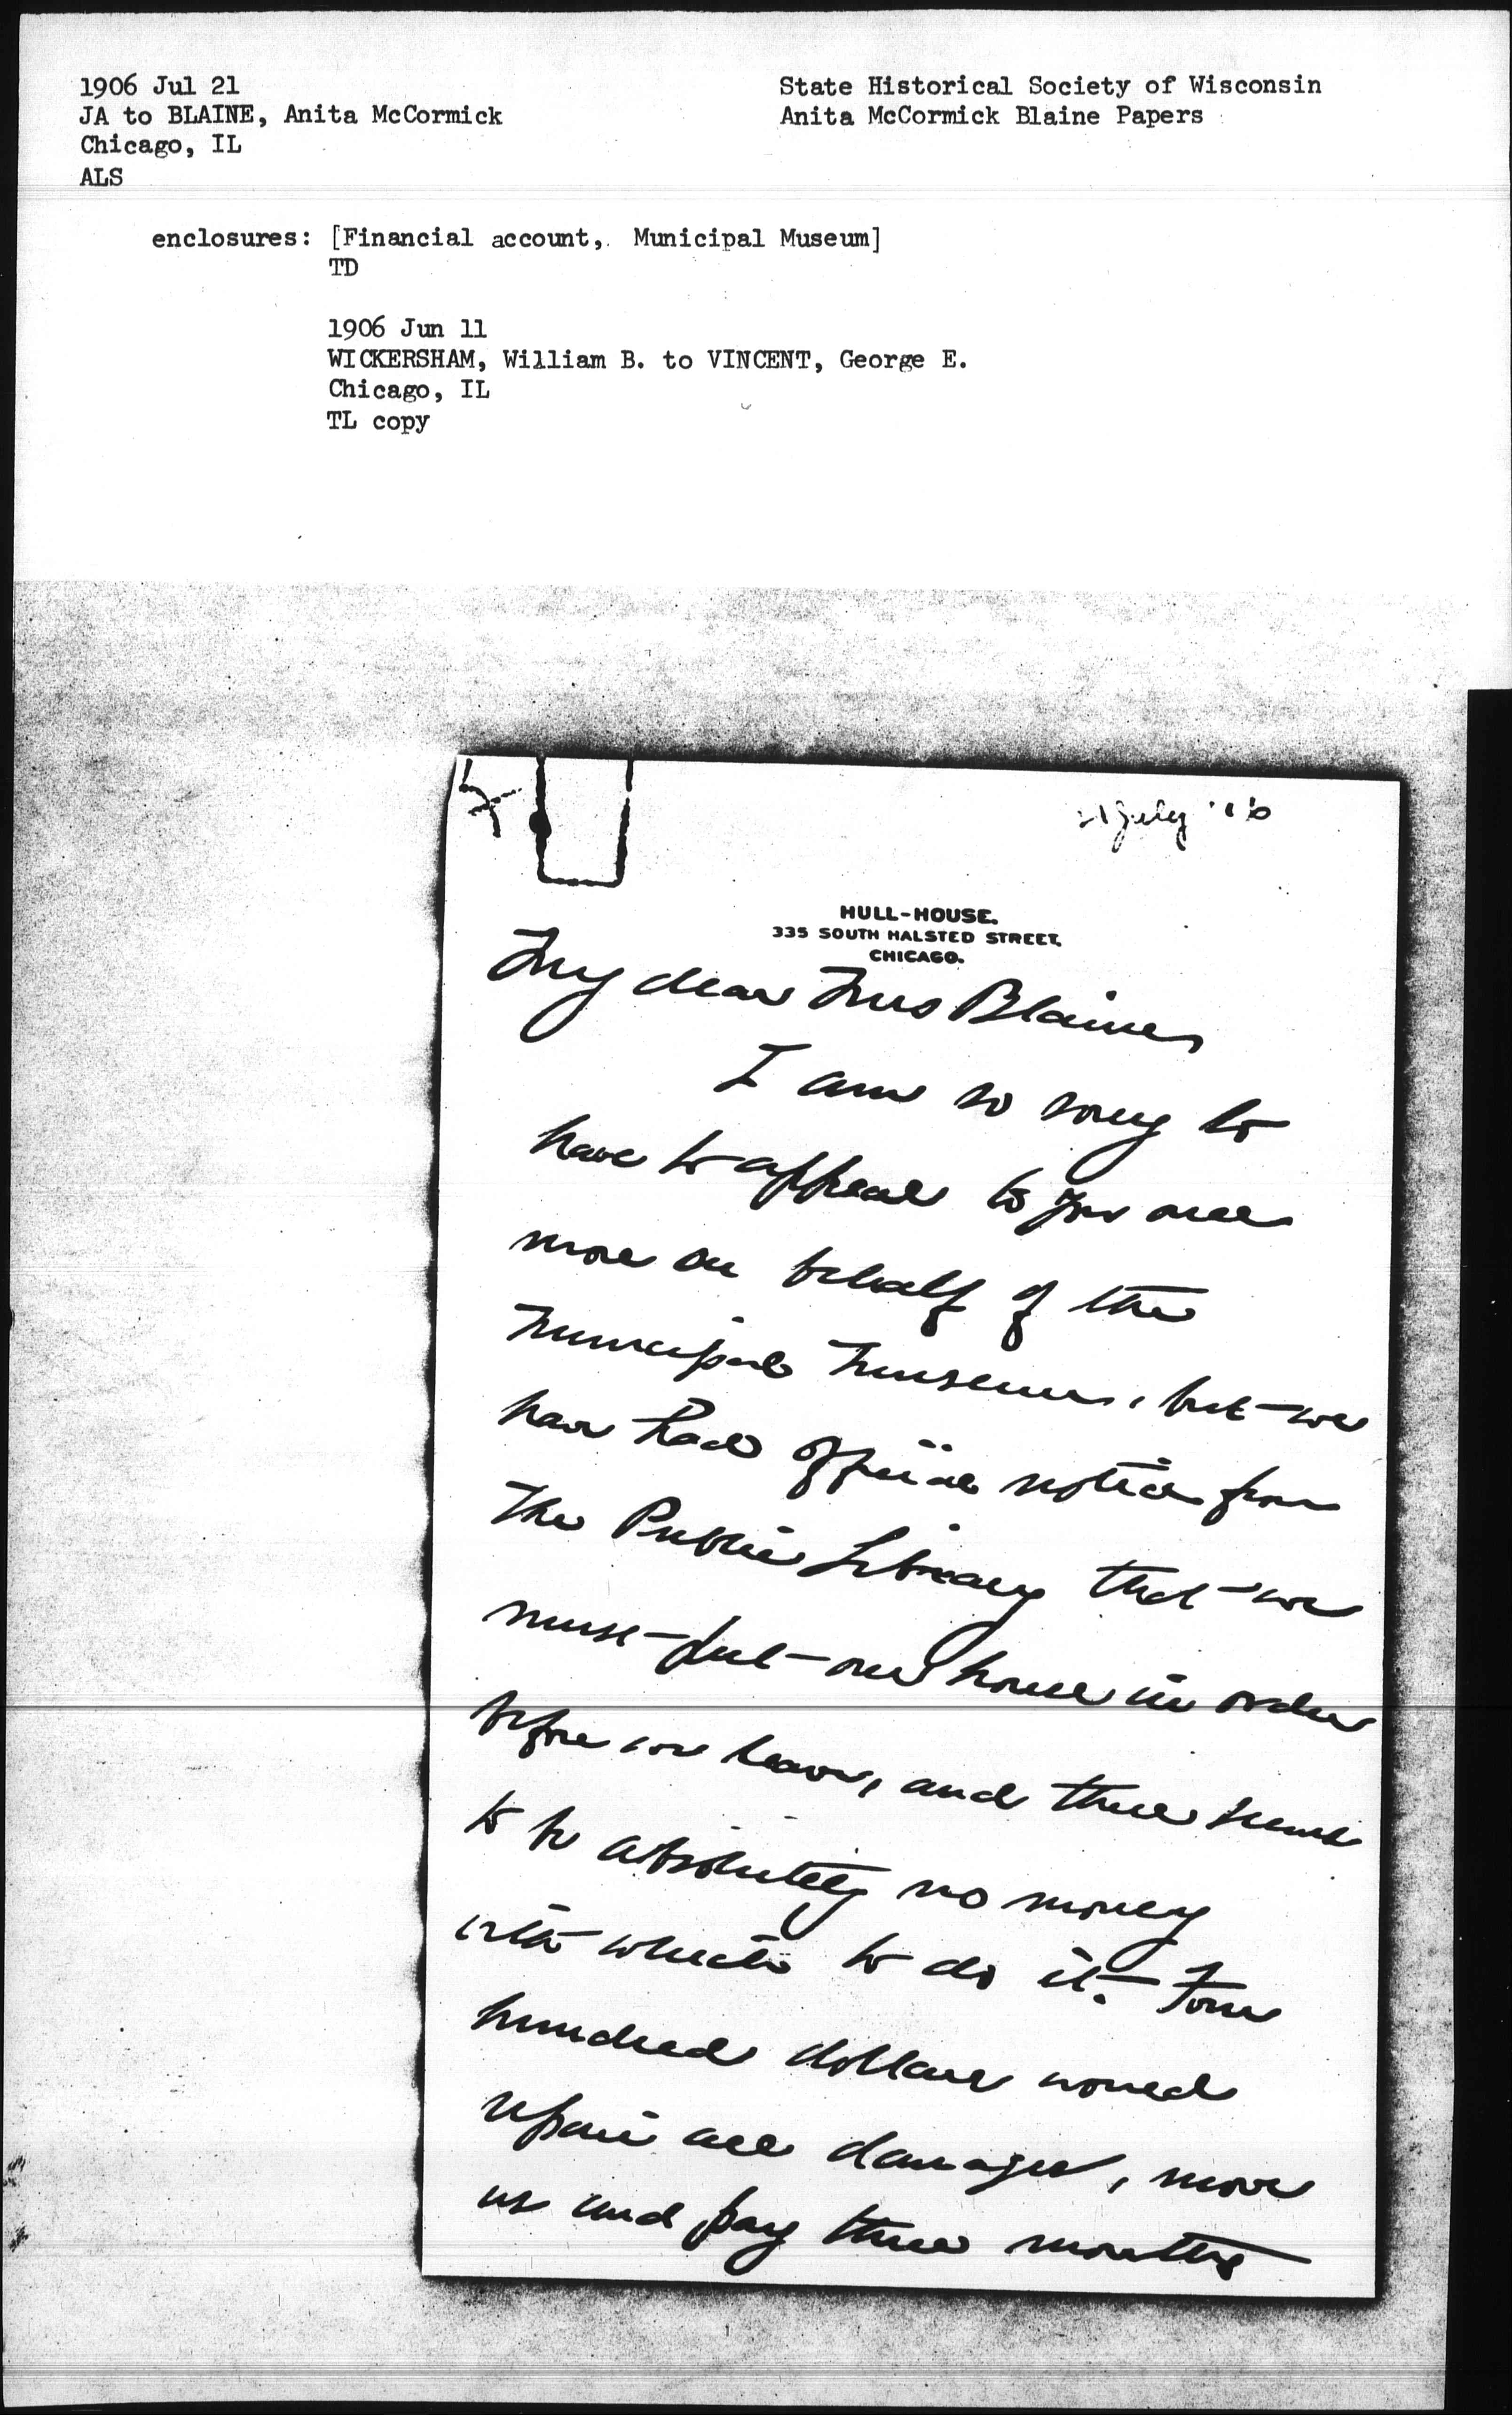 1906 Jul 21
JA to BLAINE, Anita McCormick
Chicago, IL
ALS
State Historical Society of Wisconsin
Anita McCormick Blaine Papers
enclosures: [Financial account, Municipal Museum]
TD
1906 Jun 11
WICKERSHAM, William B. to VINCENT, George E.
Chicago, IL
TL copy
21 July '06
HULL-HOUSE.
335 SOUTH HALSTED STREET,
CHICAGO.
My dear Mrs Blaine,
I am so sorry to
have to appeal to you once
more on behalf of the
Municipal Museum, but we
have had official notice from
The Public Library that we
must put our house in order
before we leave, and there seems
to be absolutely no money
with which to do it. Four
hundred dollars would
repair all damages, move
us and pay three months